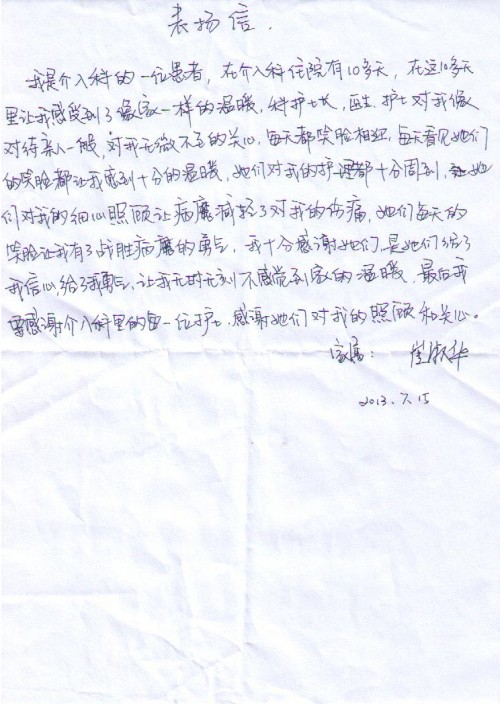 表扬信.
我是介入科的一位患者,在介入科住院有10多天,在这10多天
里让我感受到了像家一样的温暖,科护士长,医生.护士对我像
对待亲人一般,对我无微不至的关心,每天都笑脸相迎,每天看见她们
的笑脸都让我感到十分的温暖,她们对我的护理都十分周到,她
们对我的细心照顾让病魔减轻了对我的伤痛,她们每天的
笑脸让我有了战胜病魔的勇气,我十分感谢她们,是她们给了
我信心,给了我勇气,让我无时无刻不感觉到家的温暖,最后我
要感谢介入科里的每一位护士,感谢她们对我的照顾和关心。
家属: 淑华
2013.7.15